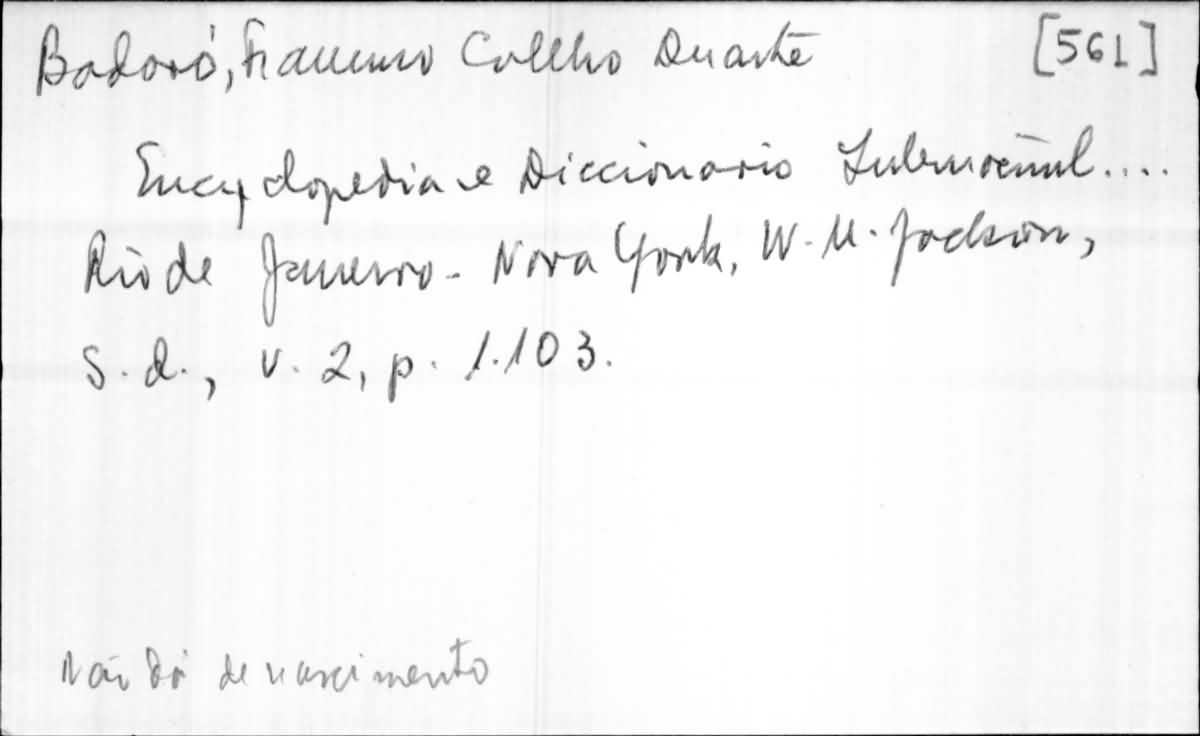 Badaró, Francisco Coelho Duarte [561]
Encyclopedia e Diccionario Internacional....
Rio de Janeiro - Nova York, W. M. Jackson,
S. d., v. 2, p. 1.103.
Não dá de nascimento